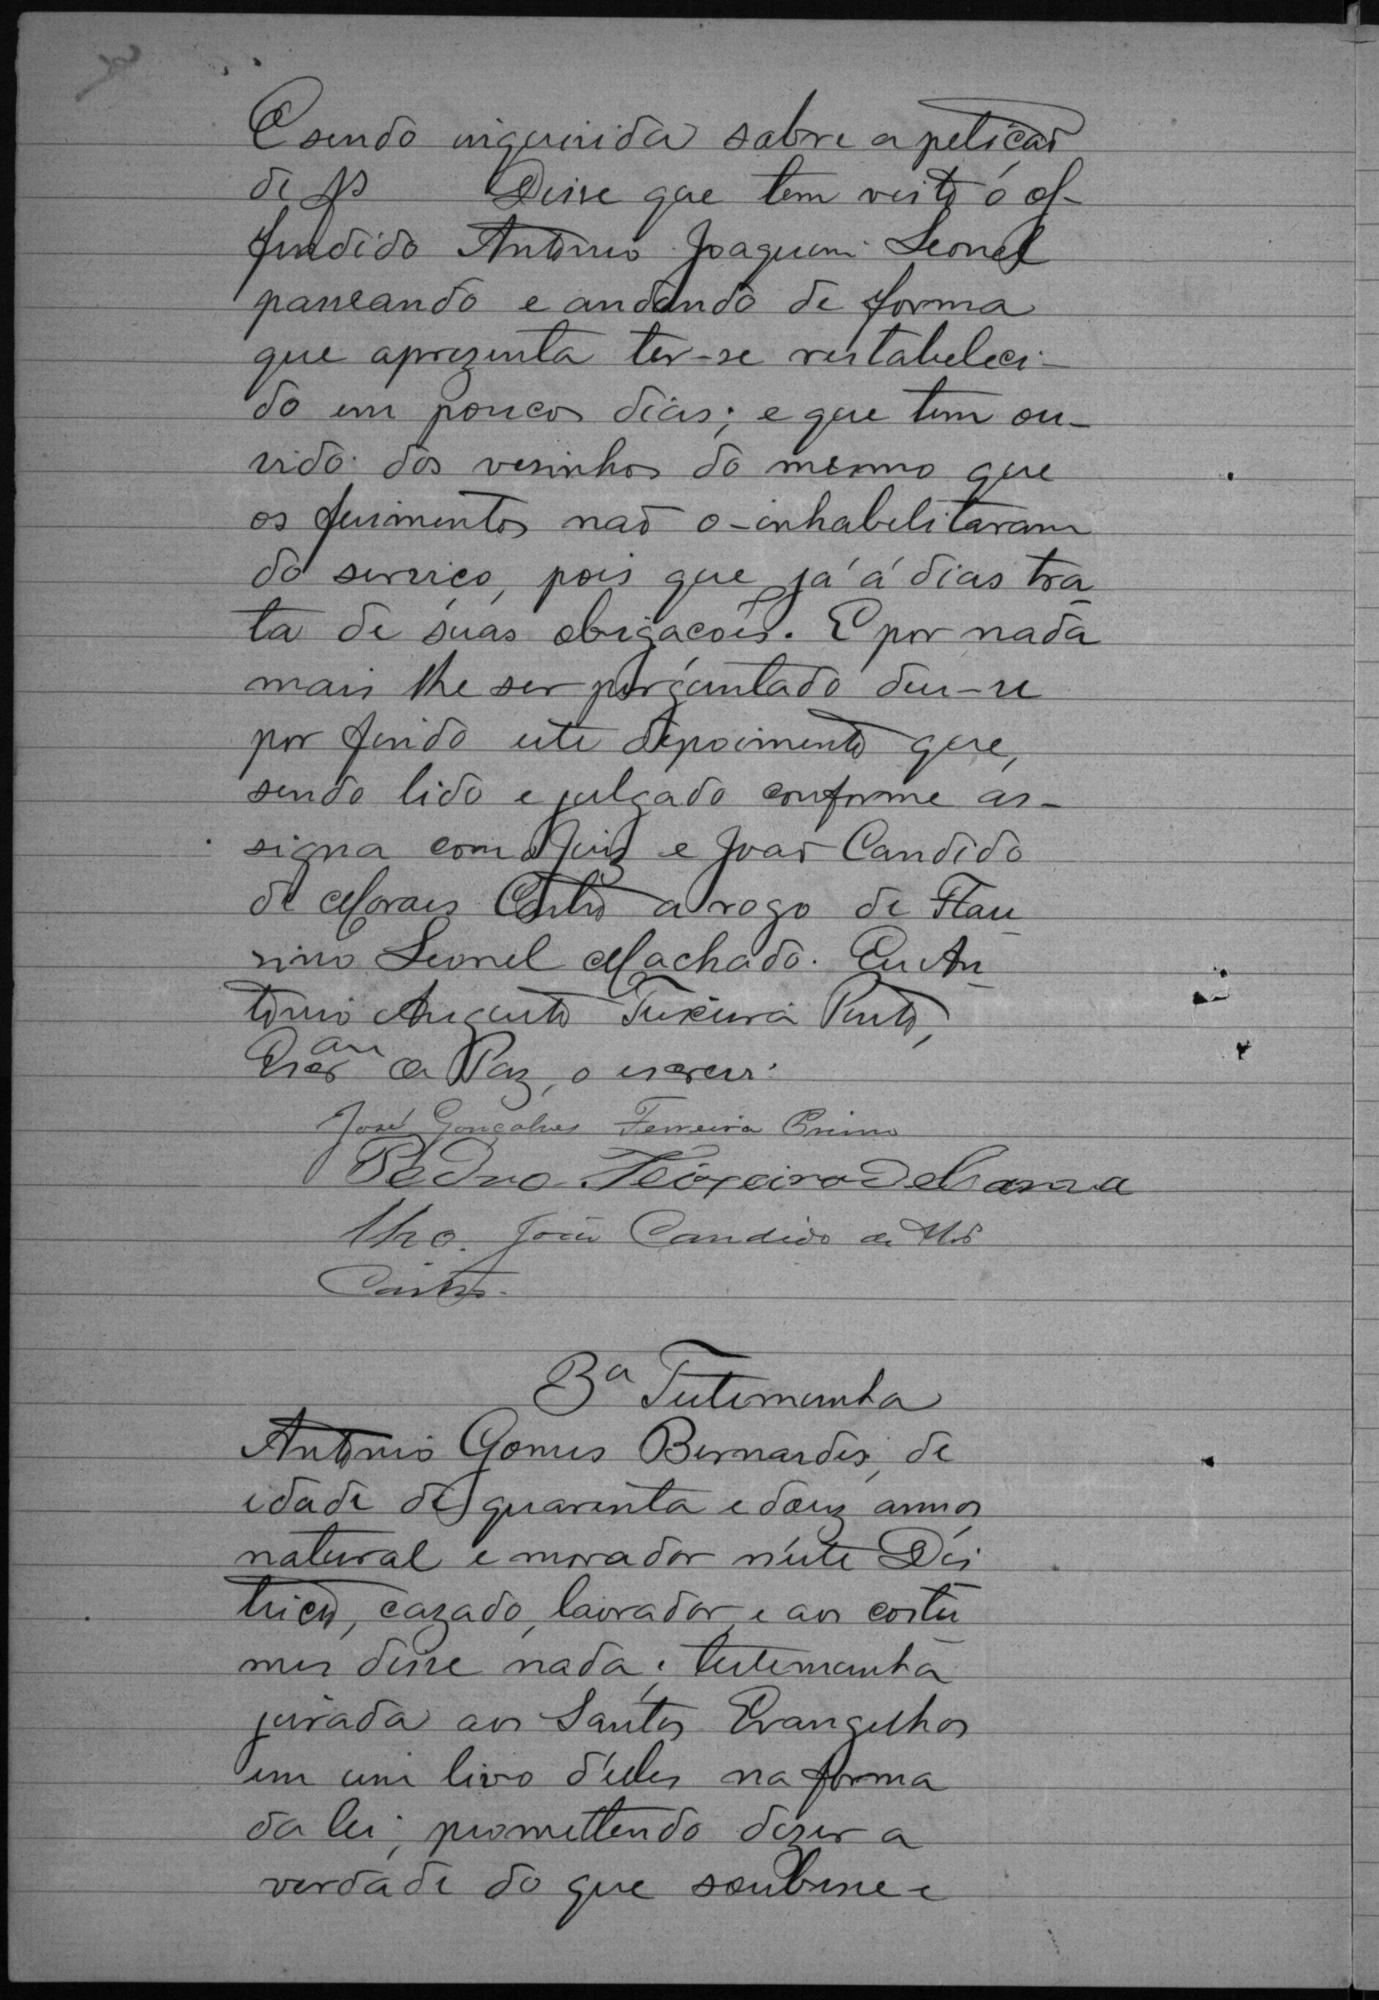 E sendo inquirida sobre a petição
de fls Disse que tem visto o of-
fendido Antonio Joaquim Leonel
passeando e andando de forma
que aprezenta ter-se restabeleci-
do em poucos dias; e que tem ou-
vido dos vesinhos do mesmo que
os ferimentos não o-inhabelitaram
do serviço, pois que já á dias tra
ta de suas obrigações. E por nada
mais lhe ser perguntado deu-se
por findo este depoimento que,
sendo lido e julgado conforme as-
signa com o Juiz e João Candido
de Moraes Castro a rogo de Flau
sino Leonel Machado. Eu An
tonio Augusto Teixeira Pinto,
Escr.am de Paz, o escrevi.
José Gonçalves Ferreira Primo
Pedro Teixeira de Carva
lho. João Candido de Mor.s
Castro.
3ª Testemunha
Antonio Gomes Bernardes, de
idade de quarenta e douz annos
natural e morador n'este Dis
tricto, cazado, lavrador, e aos costu
mes disse nada; testemunha
jurada aos Santos Evangelhos
em um livro d'elles na forma
da lei, promettendo dizer a
verdade do que soubesse e